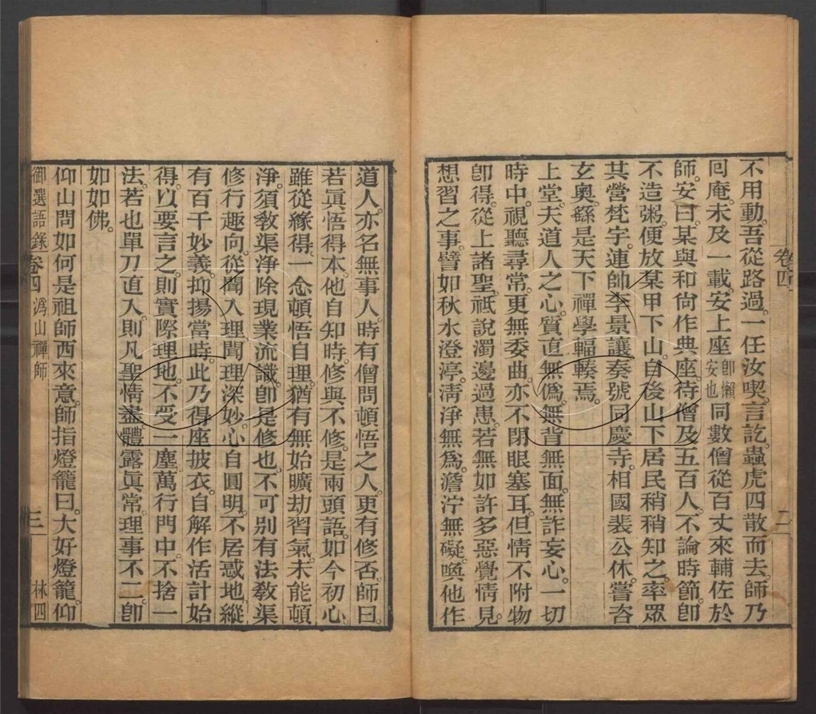 卷四
二
不用動。吾從路過。一任汝喫。言訖。蟲虎四散而去。師乃
回庵。未及一載。安上座卽懶安也同數僧從百丈來輔佐於
師。安曰。某與和尙作典座。待僧及五百人。不論時節。卽
不造粥。便放某甲下山。自後山下居民稍稍知之。率眾
共營梵宇。連帥李景讓奏號同慶寺。相國裴公休嘗咨
玄奧。繇是天下禪學輻輳焉。
上堂。夫道人之心。質直無僞。無背無面。無詐妄心。一切
時中。視聽尋常。更無委曲。亦不閉眼塞耳。但情不附物
卽得。從上諸聖。祇說濁邊過患。若無如許多惡覺情見
想習之事。譬如秋水澄渟。清淨無爲。澹泞無礙。喚他作
道人。亦名無事人。時有僧問頓悟之人。更有修否。師曰。
若眞悟得本。他自知時。修與不修。是兩頭語。如今初心
雖從緣得。一念頓悟自理。猶有無始曠劫習氣。未能頓
淨。須敎渠淨除現業流識。卽是修也。不可別有法敎渠
修行趣向。從聞入理。聞理深妙。心自圓明。不居惑地。縱
有百千妙義。抑揚當時。此乃得座披衣。自解作活計始
得。以要言之。則實際理地。不受一塵。萬行門中。不捨一
法。若也單刀直入。則凡聖情盡。體露眞常。理事不二。卽
如如佛。
仰山問如何是祖師西來意。師指燈籠曰。大好燈籠。仰
御選語錄卷四 溈山禪師
三
林四